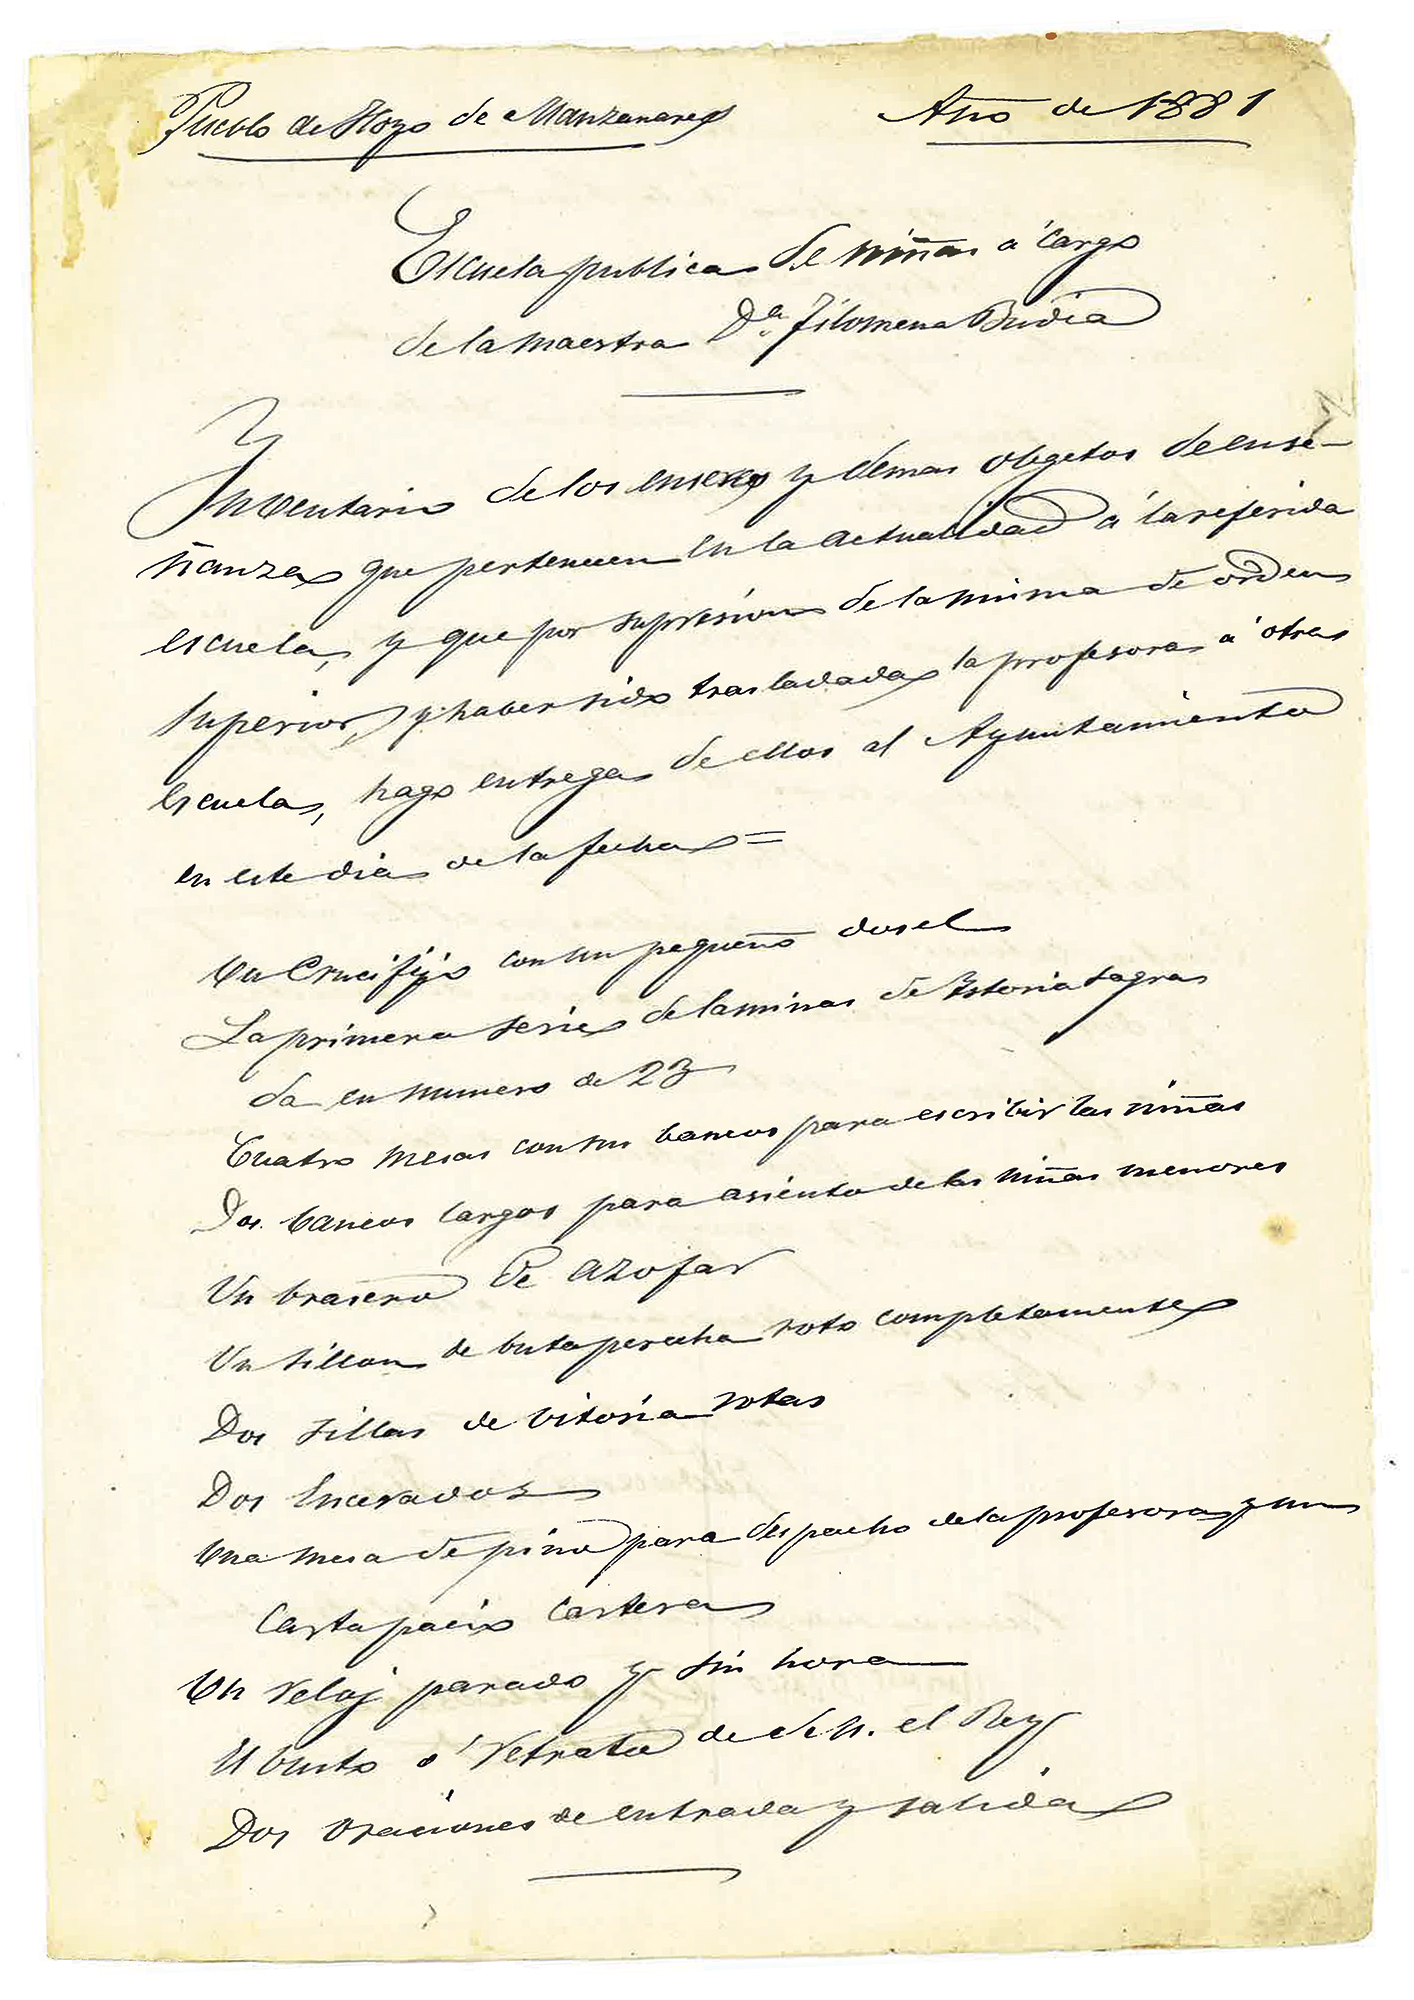 Pueblo de Hoyo de Manzanares Año de 1881
Escuela publica de niñas á cargo
de la maestra Dª Filomena Budia
Ynventario de los enseres y demas obgetos de ense-
ñanza que pertenecen en la actualidad á la referida
escuela, y que por supresion de la misma de orden
superior, y haber sido trasladada la profesora á otra
escuela, hago entrega de ellos al Ayuntamiento
en este dia de la fecha =
Un Crucifijo con un pequeño dosel
La primera serie de laminas de Ystoria sagra
da en numero de 23
Cuatro mesas con sus bancos para escribir las niñas
Dos bancos largos para asiento de las niñas menores
Un brasero de azofar
Un sillon de butapercha roto completamente
Dos sillas de Vitoria rotas
Dos Encerados
Una mesa de pino para despacho de la profesora y un
Cartapacio cartera
Un reloj parado y sin hora
El busto ó retrato de de N. el Rey
Dos oraciones de entrada y salida